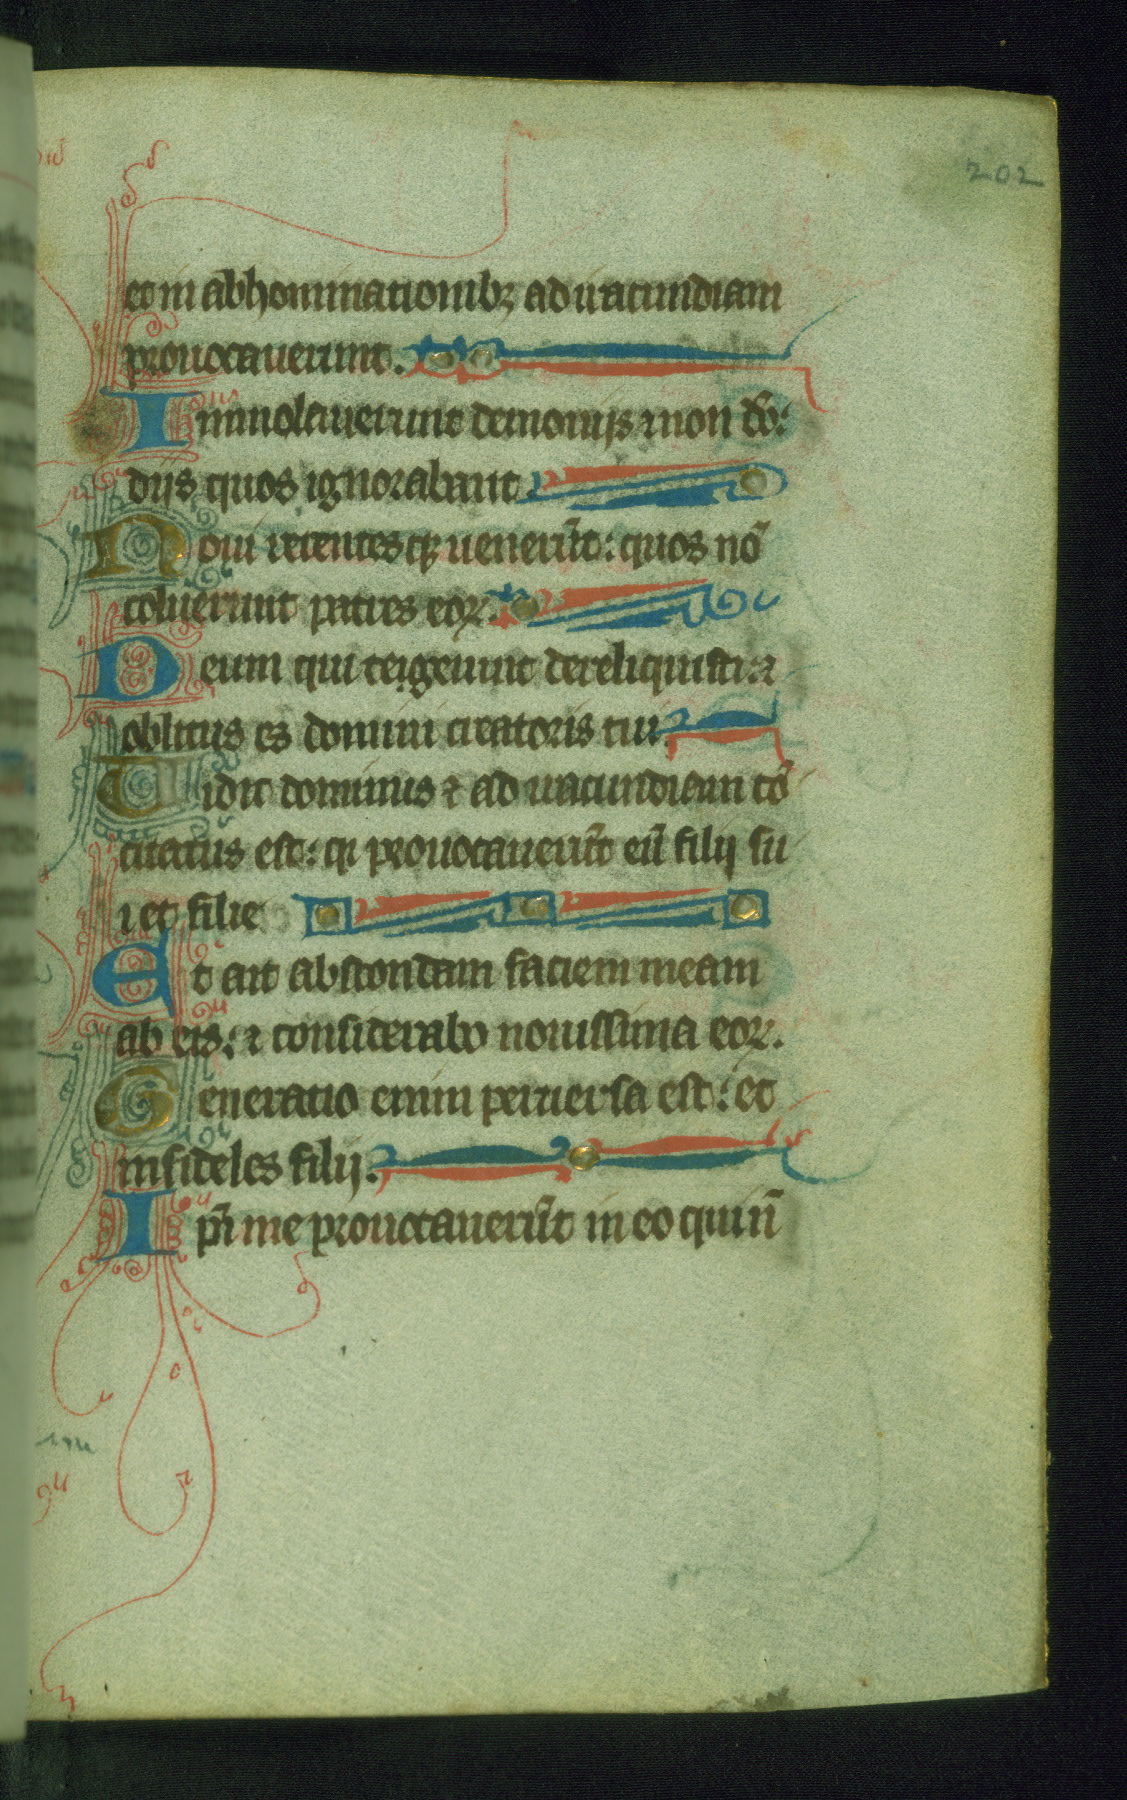 202
et in abhominationibꝫ ad iracundiam
prouocauerunt.
Immolauerunt demonijs ⁊ non dō:
dijs quos ignorabant
Noui recentesqꝫ uenerūt: quos nō
coluerunt patres eoꝝ.
Deum qui te igenuit dereliquisti: ⁊
oblitus es domini creatoris tui.
Uidit dominus ⁊ ad iracundiam cō
citatus est: qꝛ prouocauerūt eū filij su
i et filie
Et ait abscondam faciem meam
ab eis: ⁊ considerabo nouissima eoꝝ.
Generatio enim peruersa est: et
infideles filij.
Ip̄i me prouocauerūt in eo qui nō